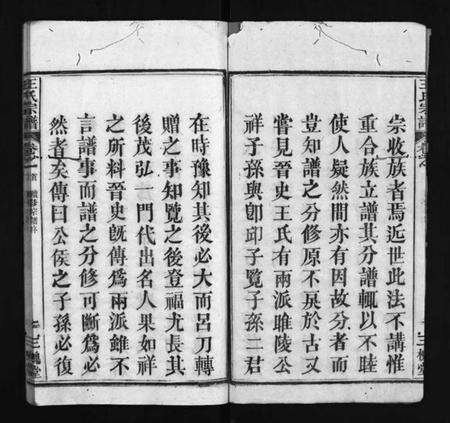 宗收族者焉近世此法不講惟
重合族立譜其分譜輒以不睦
使人疑然間亦有因故分者而
豈知譜之分修原不戾於古又
嘗見晉史王氏有兩派睢陵公
祥子孫與卽邱子覽子孫二君
王氏宗譜
在時豫知其後必大而呂刀轉
贈之事知覽之後登福尤長其
後茂弘一門代出名人果如祥
之所料晉史旣傳爲兩派雖不
言譜事而譜之分修可斷爲必
然者矣傳曰公侯之子孫必復
王氏宗譜
三槐堂